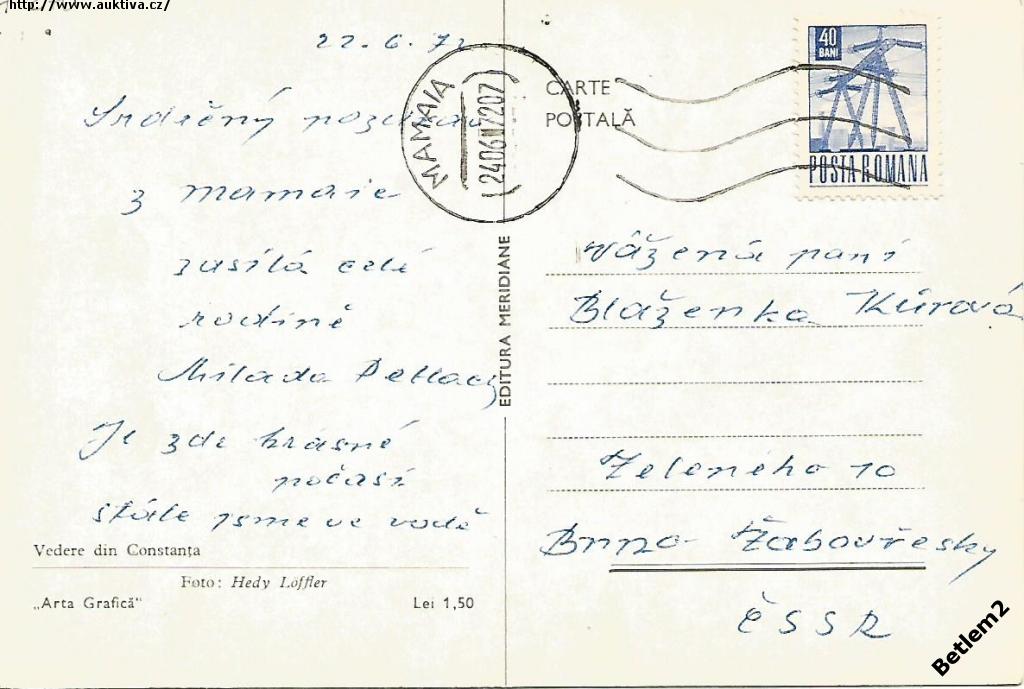 http://www.auktiva.cz/
22.6.72
Srdečný pozdrav
z Mamaie
zasílá celé
rodině
Milada
Je zde krásné
počasí
stále jsme ve vodě
Vedere din Constanța
Foto: Hedy Löffler
„Arta Grafică"
Lei 1,50
EDITURA MERIDIANE
MAMAIA
CARTE
POȘTALĂ
40
BANI
POSTA ROMANA
Vážená paní
Blaženka Kůrová
Zeleného 10
Brno - Žabovřesky
ČSSR
Betlem2